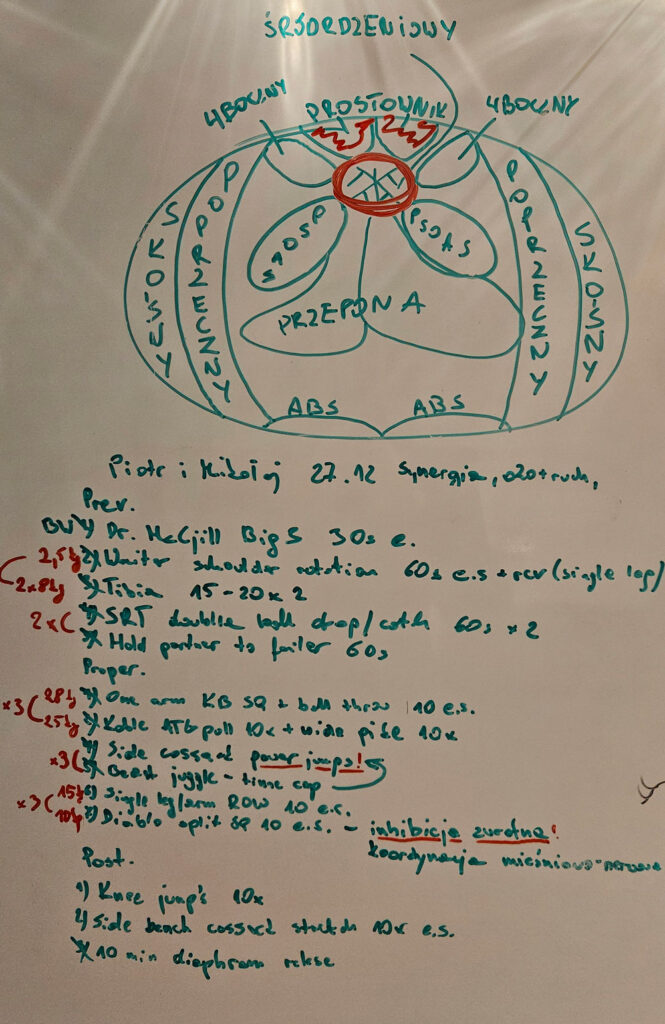 ŚRÓDRDZENIOWY
4BOCZNY PROSTOWNIK 4BOCZNY
SKOŚNY POPRZECZNY PSOAS PSOAS POPRZECZNY SKOŚNY
PRZEPONA
ABS ABS
Piotr i Mikołaj 27.12 Synergia, ruch,
Prev.
BW 1) Dr. McGjill Big 3 30s e.
2,5kg 2) Waiter schoulder rotation 60s e.s + rcv (single leg)
2x8kg 3) Tibia 15-20x2
2x( 4) SRT double ball drop/catch 60s x2
5) Hold partner to failer 60s
Proper.
x3( 28kg 1) One arm KB SQ + ball throw 10 e.s.
25kg 2) Kable ATG pull 10x + wide pike 10x
4) Side cossack power jumps!
x3( 5) Beast juggle - time cap
x3( 15kg 6) Single leg/arm ROW 10 e.s.
10kg 7) Diablo split SQ 10 e.s. - inhibicja zwrotna!
koordynacja mięśniowo-nerwowa
Post.
1) Knee jump's 10x
2) Side bench cossack stretch 10x e.s.
3) 10 min diaphram